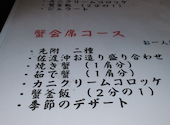 蟹会席コース
お一人
・先附 二種
・佐渡沖お造り盛り合わせ
・焼き蟹（１肩分）
・茹で蟹（１肩分）
・カニクリームコロッケ
・蟹釜飯（２分の１）
・季節のデザート